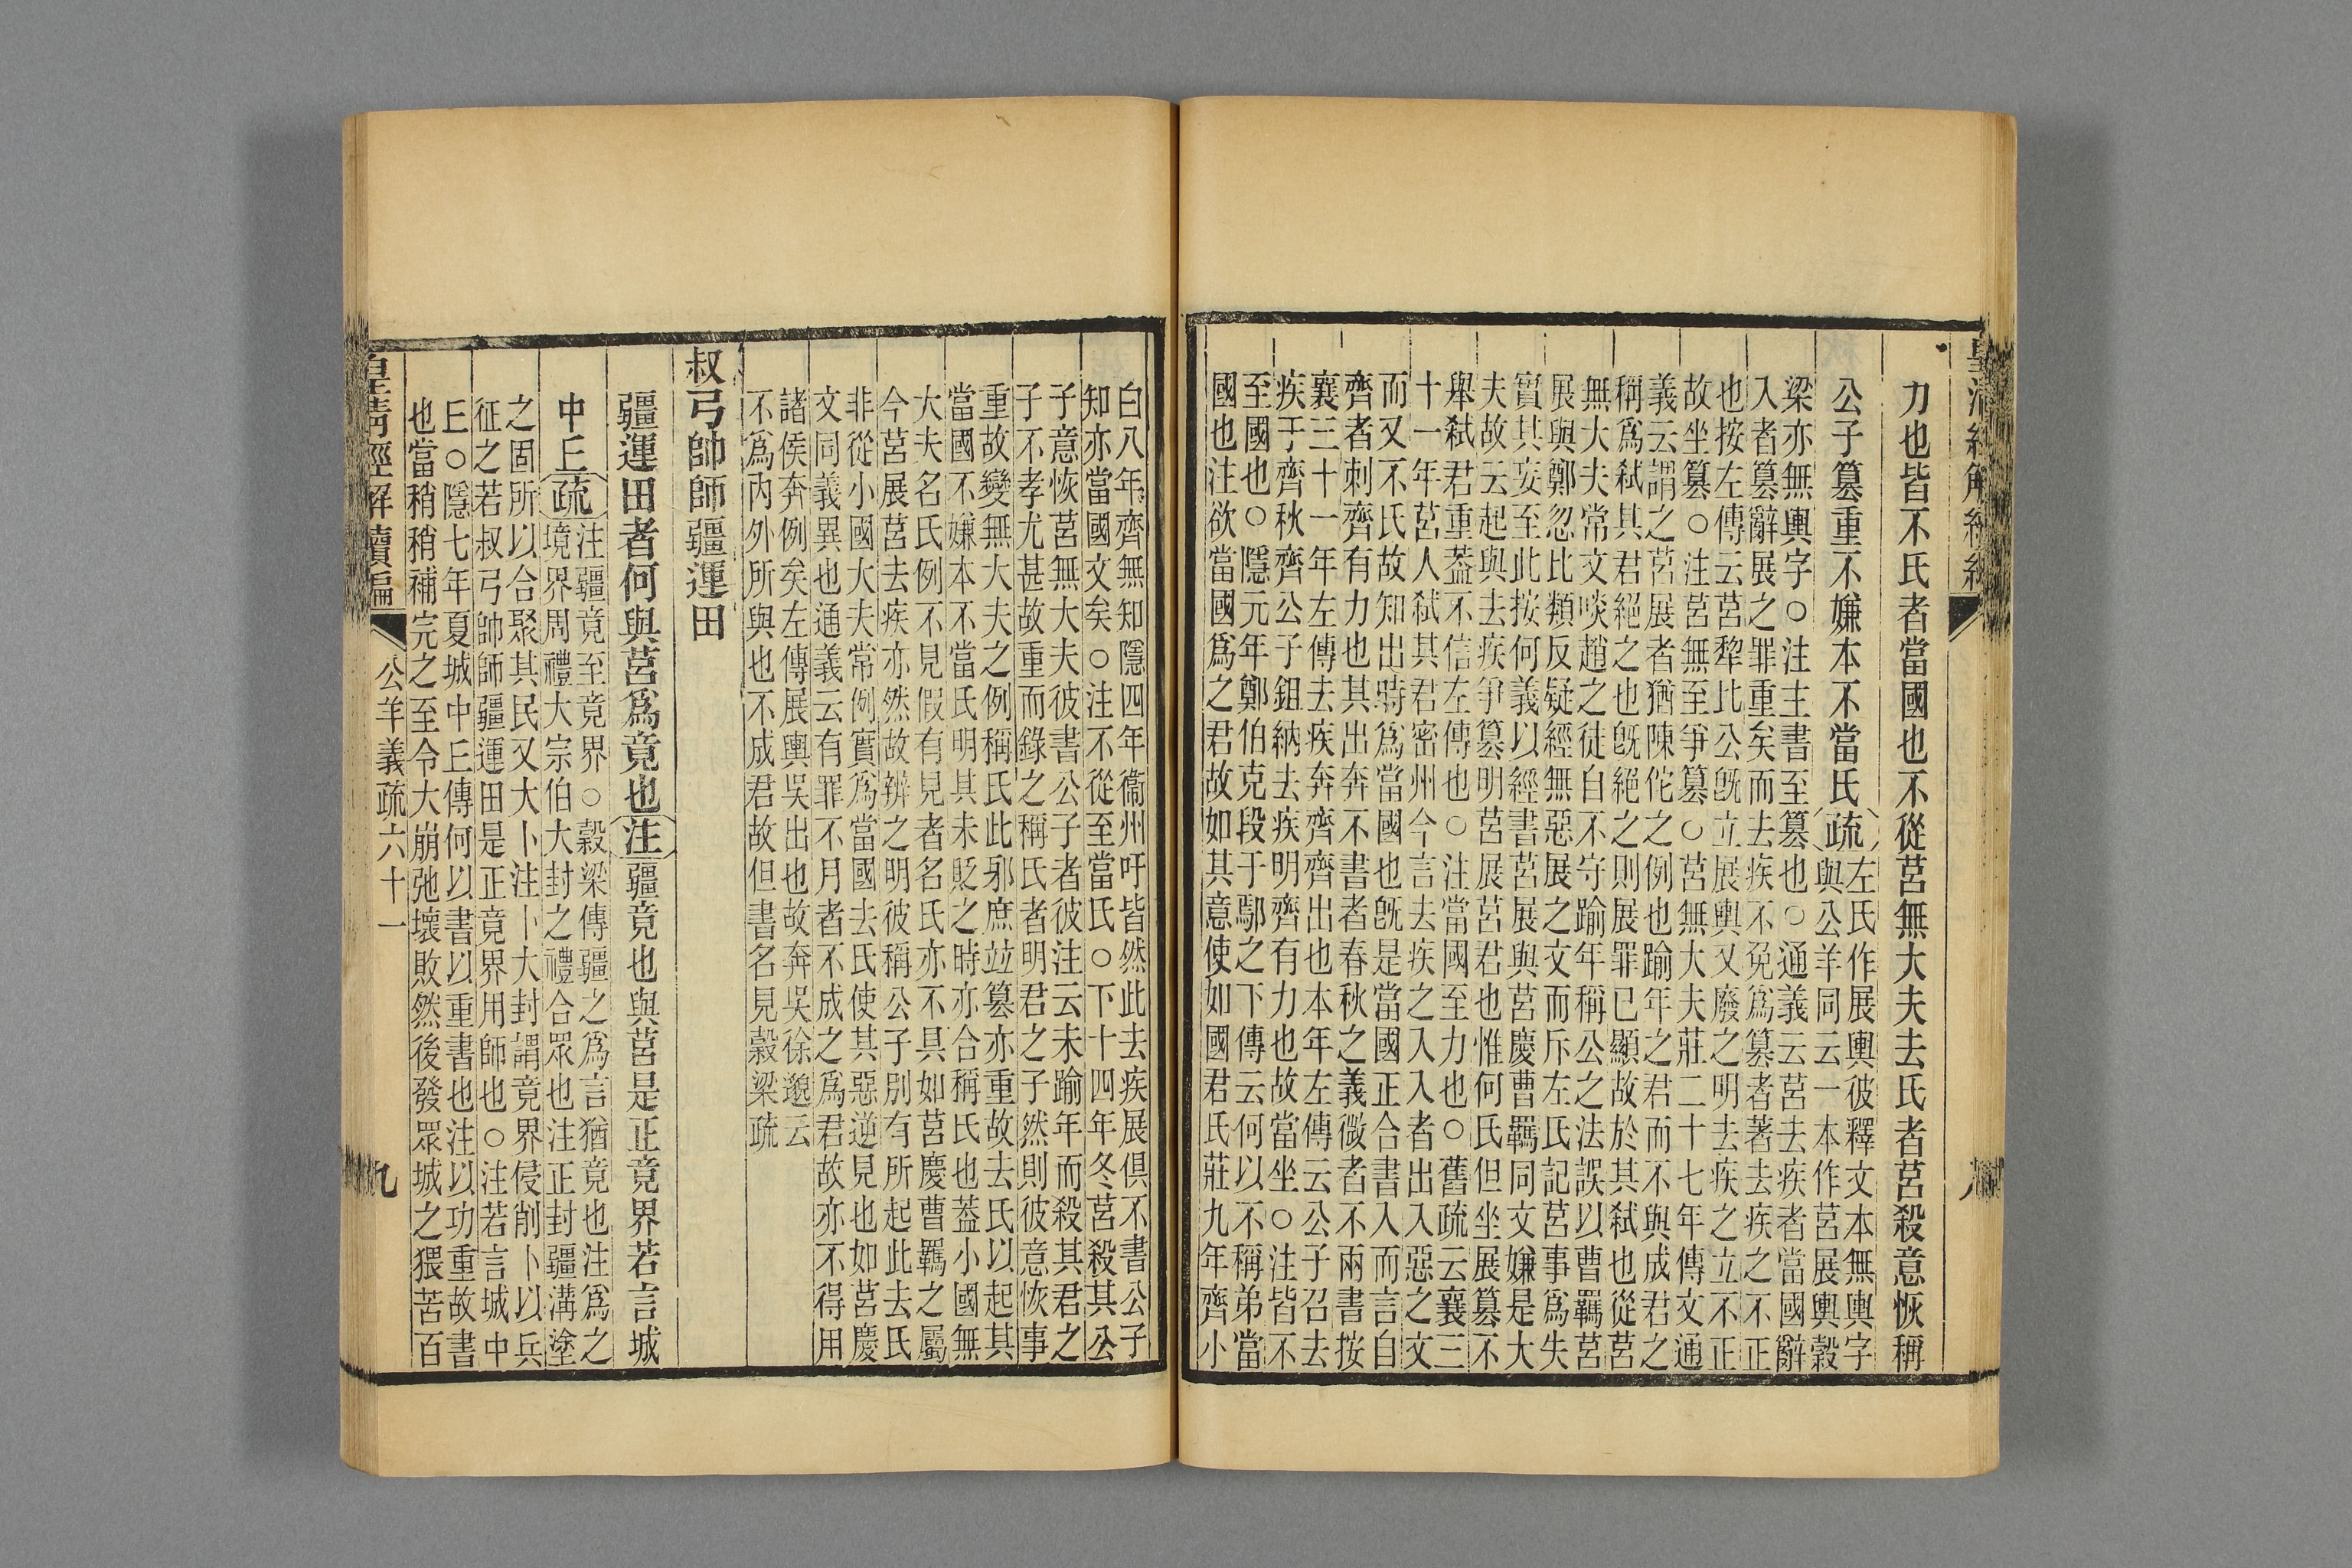 皇清經解續編
力也皆不氏者當國也不從莒無大夫去氏者莒殺意恢稱
公子篡重不嫌本不當氏疏左氏作展輿彼釋文本無輿字
與公羊同云一本作莒展輿穀
梁亦無輿字○注主書至篡也○通義云莒去疾者當國辭
入者篡辭展之罪重矣而去疾不免爲篡者著去疾之不正
也按左傳云莒犂比公旣立展輿又廢之明去疾之立不正
故坐篡○注莒無至爭篡○莒無大夫莊二十七年傳文通
義云謂之莒展者猶陳佗之例也踰年之君而不與成君之
稱爲弑其君絕之也旣絕之則展罪已顯故於其弑也從莒
無大夫常文啖趙之徒自不守踰年稱公之法誤以曹羈莒
展與鄭忽比類反疑經無惡展之文而斥左氏記莒事爲失
實其妄至此按何義以經書莒展與莒慶曹羈同文嫌是大
夫故云起與去疾爭篡明莒展莒君也惟何氏但坐展篡不
舉弑君重葢不信左傳也○注當國至力也○舊疏云襄三
十一年莒人弑其君密州今言去疾之入入者出入惡之文
而又不氏故知出時爲當國也旣是當國正合書入而言自
齊者刺齊有力也其出奔不書者春秋之義微者不兩書按
襄三十一年左傳去疾奔齊齊出也本年左傳云公子召去
疾于齊秋齊公子鉏納去疾明齊有力也故當坐○注皆不
至國也○隱元年鄭伯克段于鄢之下傳云何以不稱弟當
國也注欲當國爲之君故如其意使如國君氏莊九年齊小
白八年齊無知隱四年衞州吁皆然此去疾展俱不書公子
知亦當國文矣○注不從至當氏○下十四年冬莒殺其公
子意恢莒無大夫彼書公子者彼注云未踰年而殺其君之
子不孝尤甚故重而錄之稱氏者明君之子然則彼意恢事
重故變無大夫之例稱氏此邪庶竝篡亦重故去氏以起其
當國不嫌本不當氏明其未貶之時亦合稱氏也葢小國無
大夫名氏例不見假有見者名氏亦不具如莒慶曹羈之屬
今莒展莒去疾亦然故辨之明彼稱公子別有所起此去氏
非從小國大夫常例實爲當國去氏使其惡逆見也如莒慶
文同義異也通義云有罪不月者不成之爲君故亦不得用
諸侯奔例矣左傳展輿吳出也故奔吳徐邈云
不爲內外所與也不成君故但書名見穀梁疏
叔弓帥師疆運田
疆運田者何與莒爲竟也注疆竟也與莒是正竟界若言城
中丘疏注疆竟至竟界○穀梁傳疆之爲言猶竟也注爲之
境界周禮大宗伯大封之禮合眾也注正封疆溝塗
之固所以合聚其民又大卜注卜大封謂竟界侵削卜以兵
征之若叔弓帥師疆運田是正竟界用師也○注若言城中
丘○隱七年夏城中丘傳何以書以重書也注以功重故書
也當稍稍補完之至令大崩弛壞敗然後發眾城之猥苦百
皇清經解續編
公羊義疏六十一
九